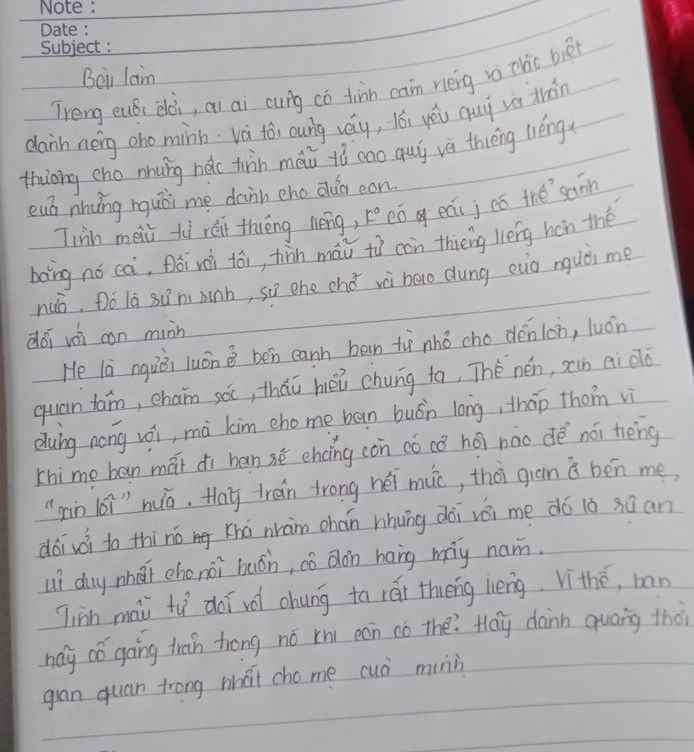 Note :
Date :
Subject :
Bài làm
Trong cuộc đời, ai ai cũng có tình cảm riêng và đặc biệt
dành riêng cho mình. Và tôi cũng vậy, tôi yêu quý và trân
thương cho những nấc tình mẫu tử cao quý và thiêng liêng
của những người mẹ dành cho đứa con.
Tình mẫu tử rất thiêng liêng, ko có cái j có thể sánh
bằng nó cả. Đối với tôi, tình mẫu tử còn thiêng liêng hơn thế
nữa. Đó là sự hi sinh, sự che chở và bao dung của người mẹ
đối với con mình
Mẹ là người luôn ở bên cạnh bạn từ nhỏ cho đến lớn, luôn
quan tâm, chăm sóc, thấu hiểu chúng ta. Thế nên, xin ai đó
đừng nóng vội, mà làm cho mẹ bạn buồn lòng, thấp thỏm vì
khi mẹ bạn mất đi bạn sẽ chẳng còn có cơ hội nào để nói tiếng
"xin lỗi" nữa. Hãy trân trọng hết mức, thời gian ở bên mẹ,
đối với ta thì nó khá nhàm chán nhưng đối với mẹ đó là sự an
ủi duy nhất cho nỗi buồn, cô đơn hàng mấy năm.
Tình mẫu tử đối với chúng ta rất thiêng liêng. Vì thế, bạn
hãy cố gắng trân trọng nó khi còn có thể! Hãy dành quãng thời
gian quan trọng nhất cho mẹ của mình